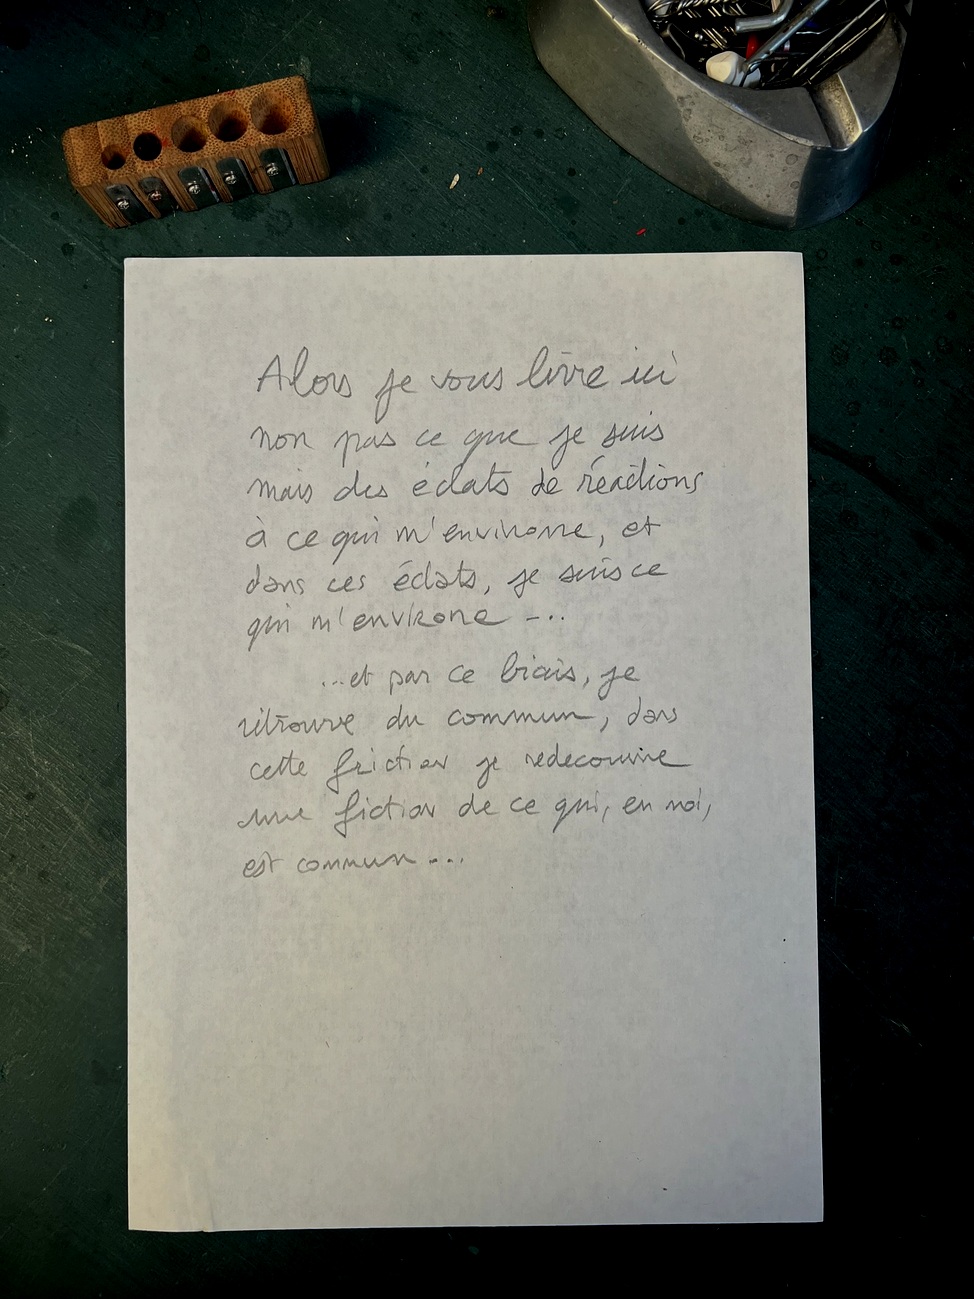 Alors je vous livre ici
non pas ce que je suis
mais des éclats de réactions
à ce qui m'environne, et
dans ces éclats, je suis ce
qui m'environe -...
...et par ce biais, je
retrouve du commun, dans
cette friction je redecouvre
une fiction de ce qui, en moi,
est commun...